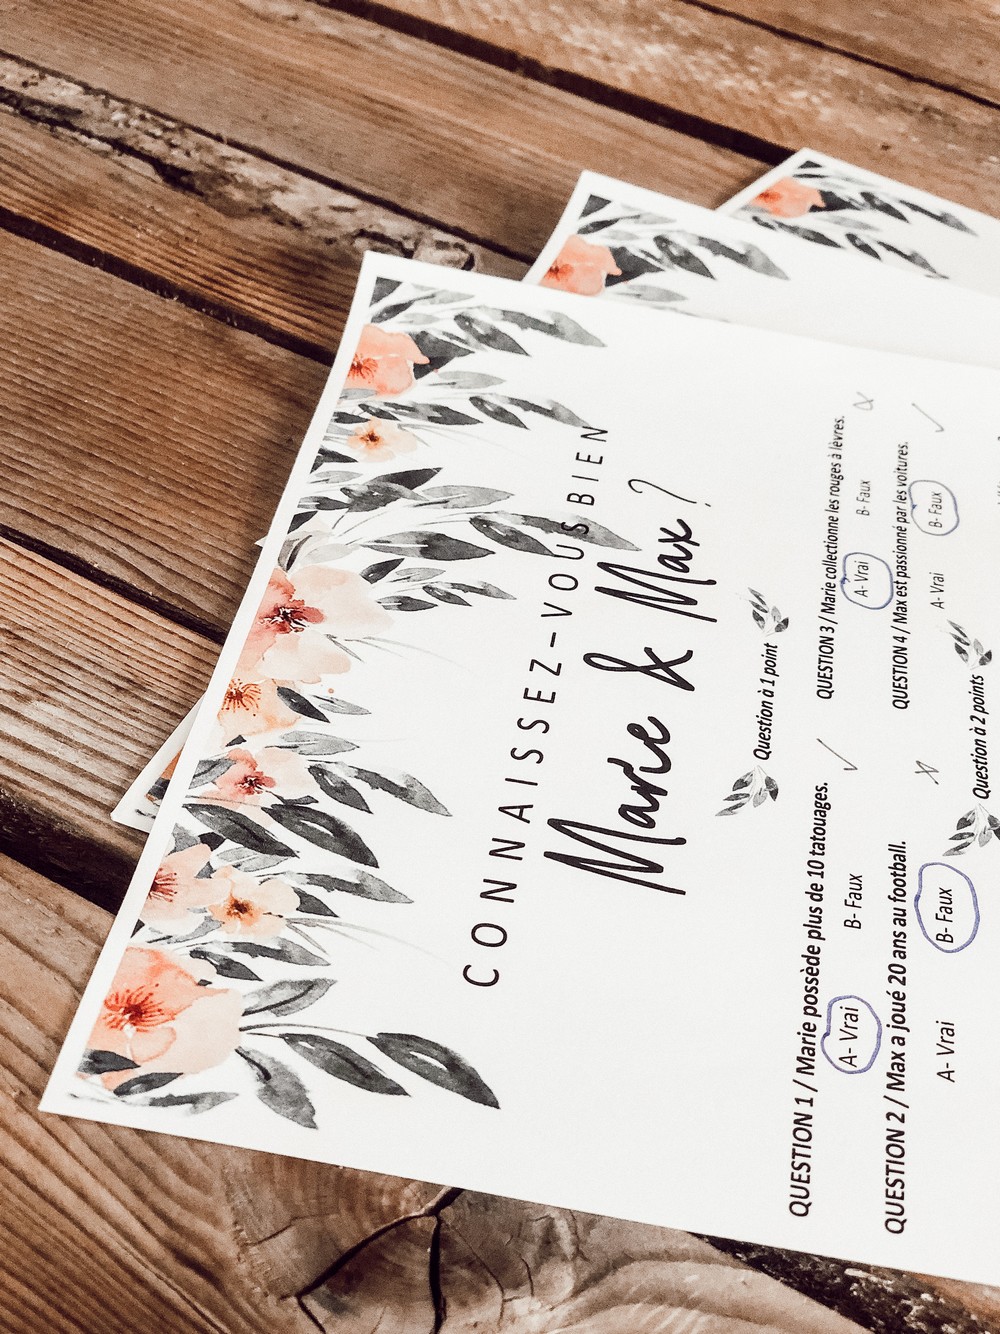 CONNAISSEZ-VOUS BIEN
Marie & Max ?
Question à 1 point
QUESTION 1 / Marie possède plus de 10 tatouages.
A- Vrai B- Faux
QUESTION 2 / Max a joué 20 ans au football.
A- Vrai B- Faux
QUESTION 3 / Marie collectionne les rouges à lèvres.
A- Vrai B- Faux
QUESTION 4 / Max est passionné par les voitures.
A- Vrai B- Faux
Question à 2 points